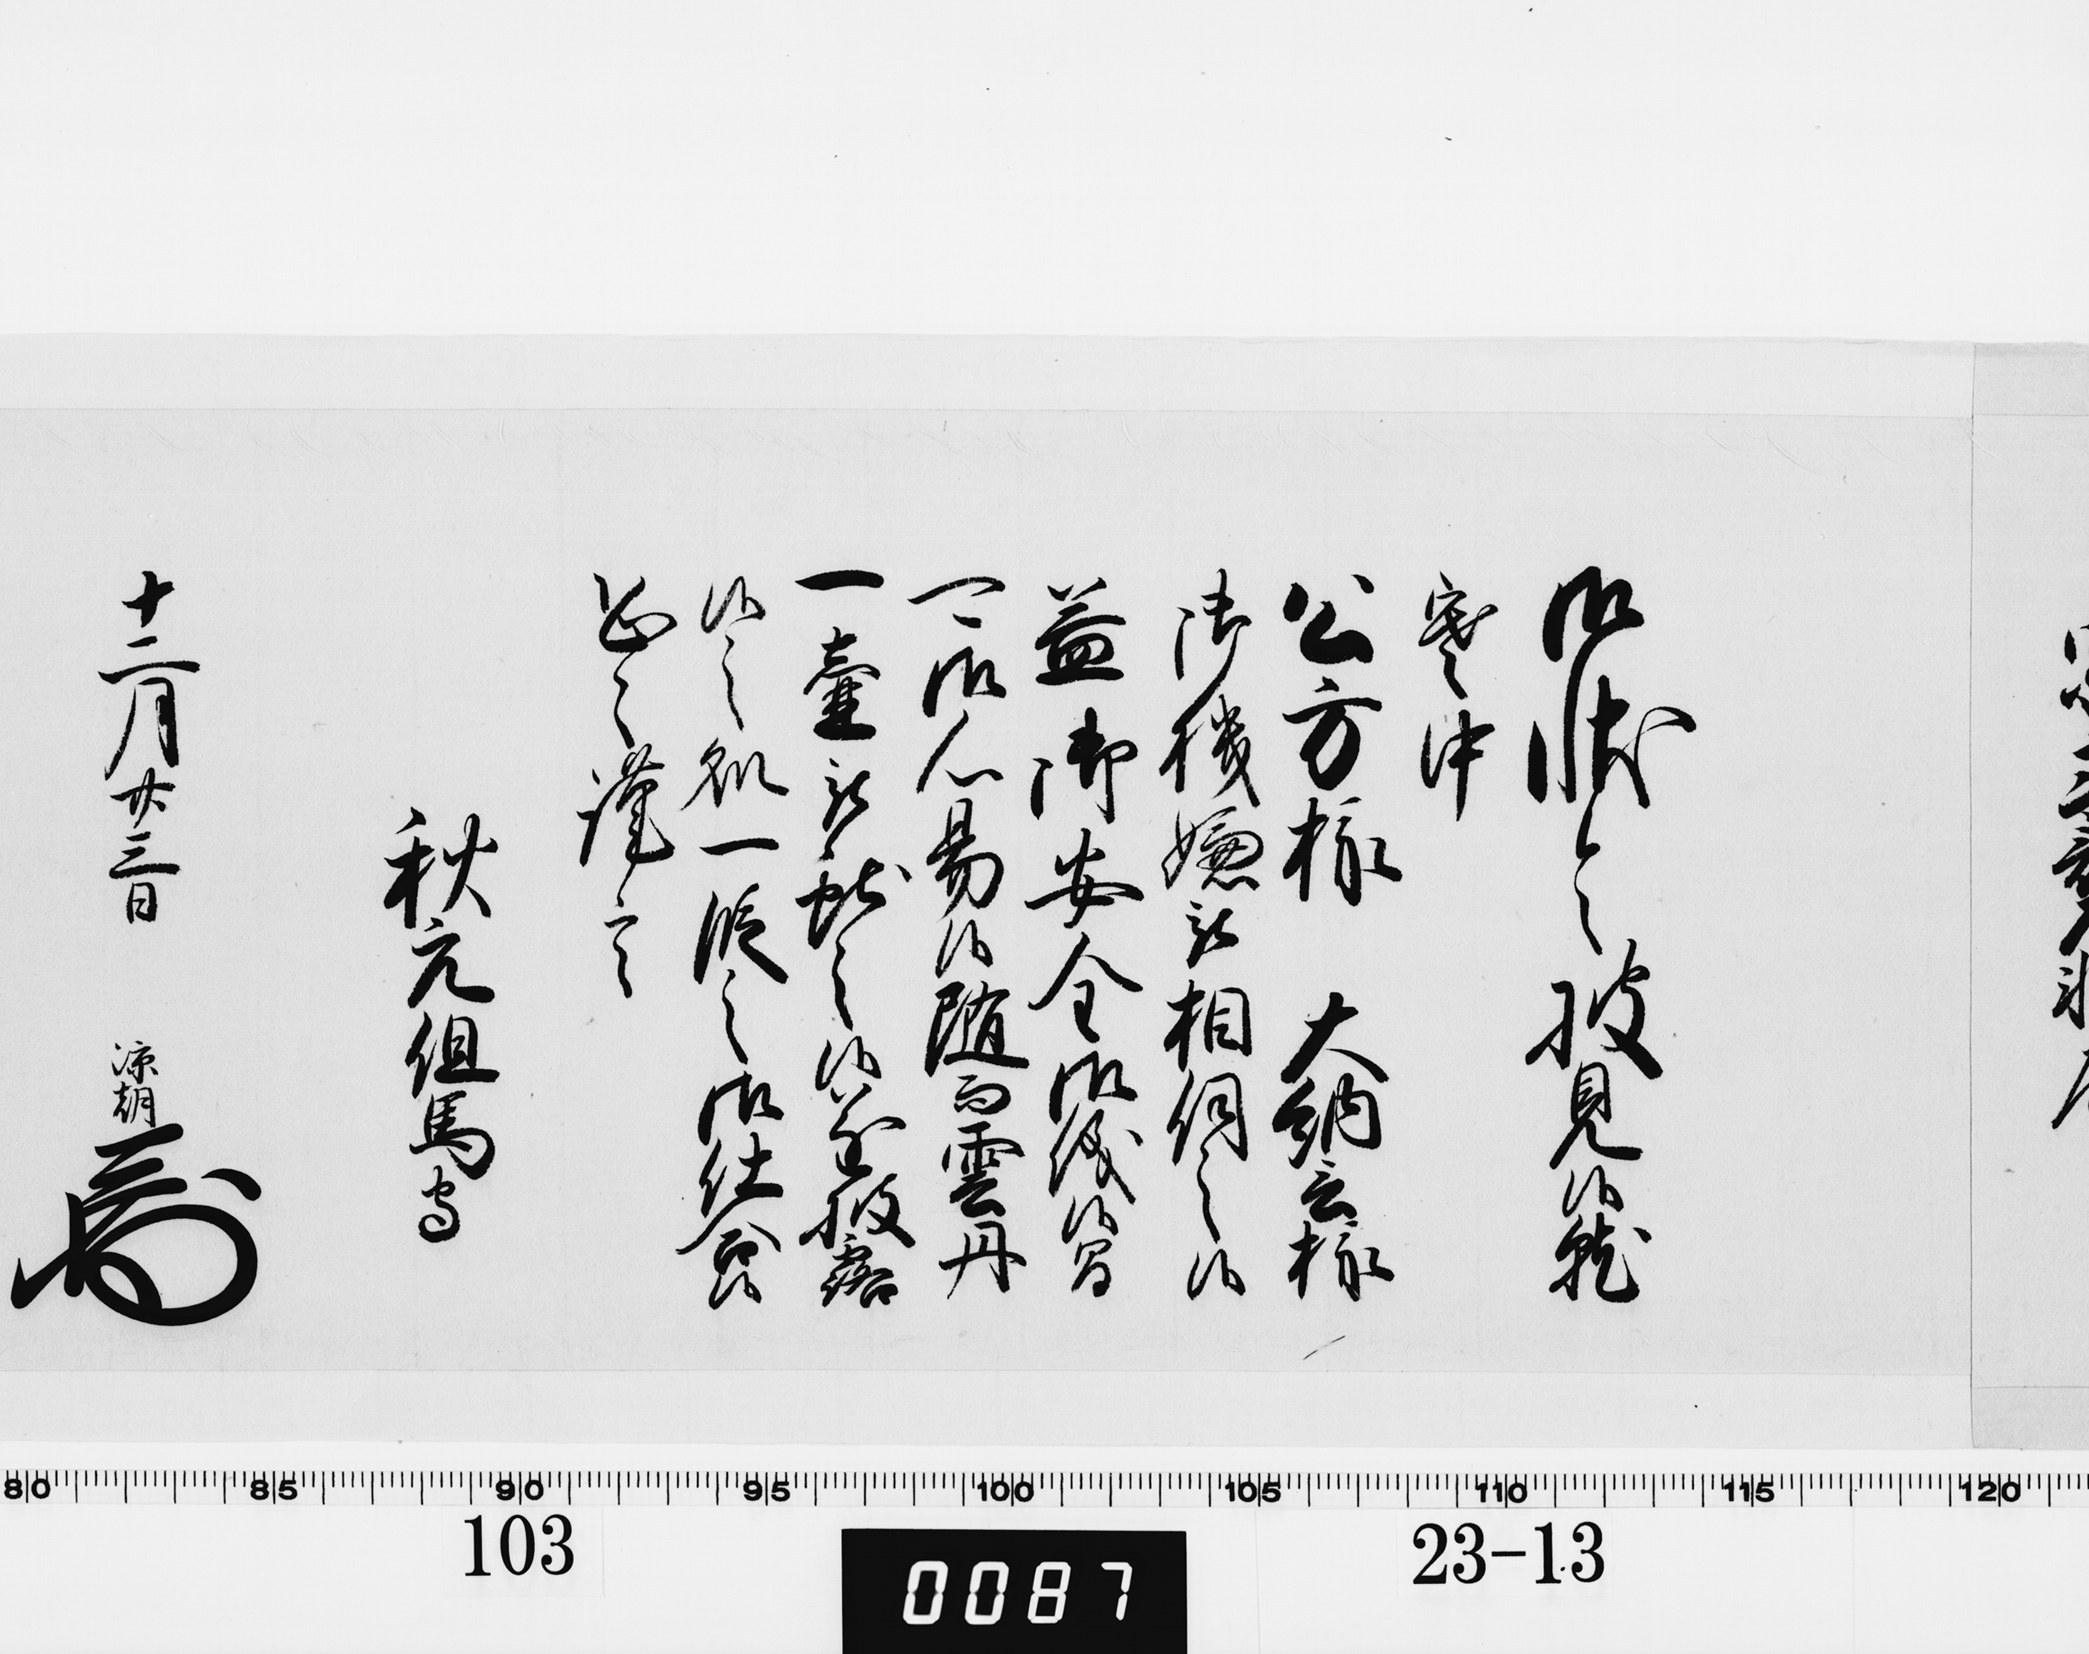 御状令披見候就
寒中
公方様 大納言様
御機嫌被相伺之候
益御安全御儀候間
可御心易候随而雲丹
一壷被献之候遂披露
候之処一段之御仕合候
恐々謹言
秋元但馬守
十二月廿三日 凉朝
80 85 90 95 100 105 110 115 120
103
0087
23-13